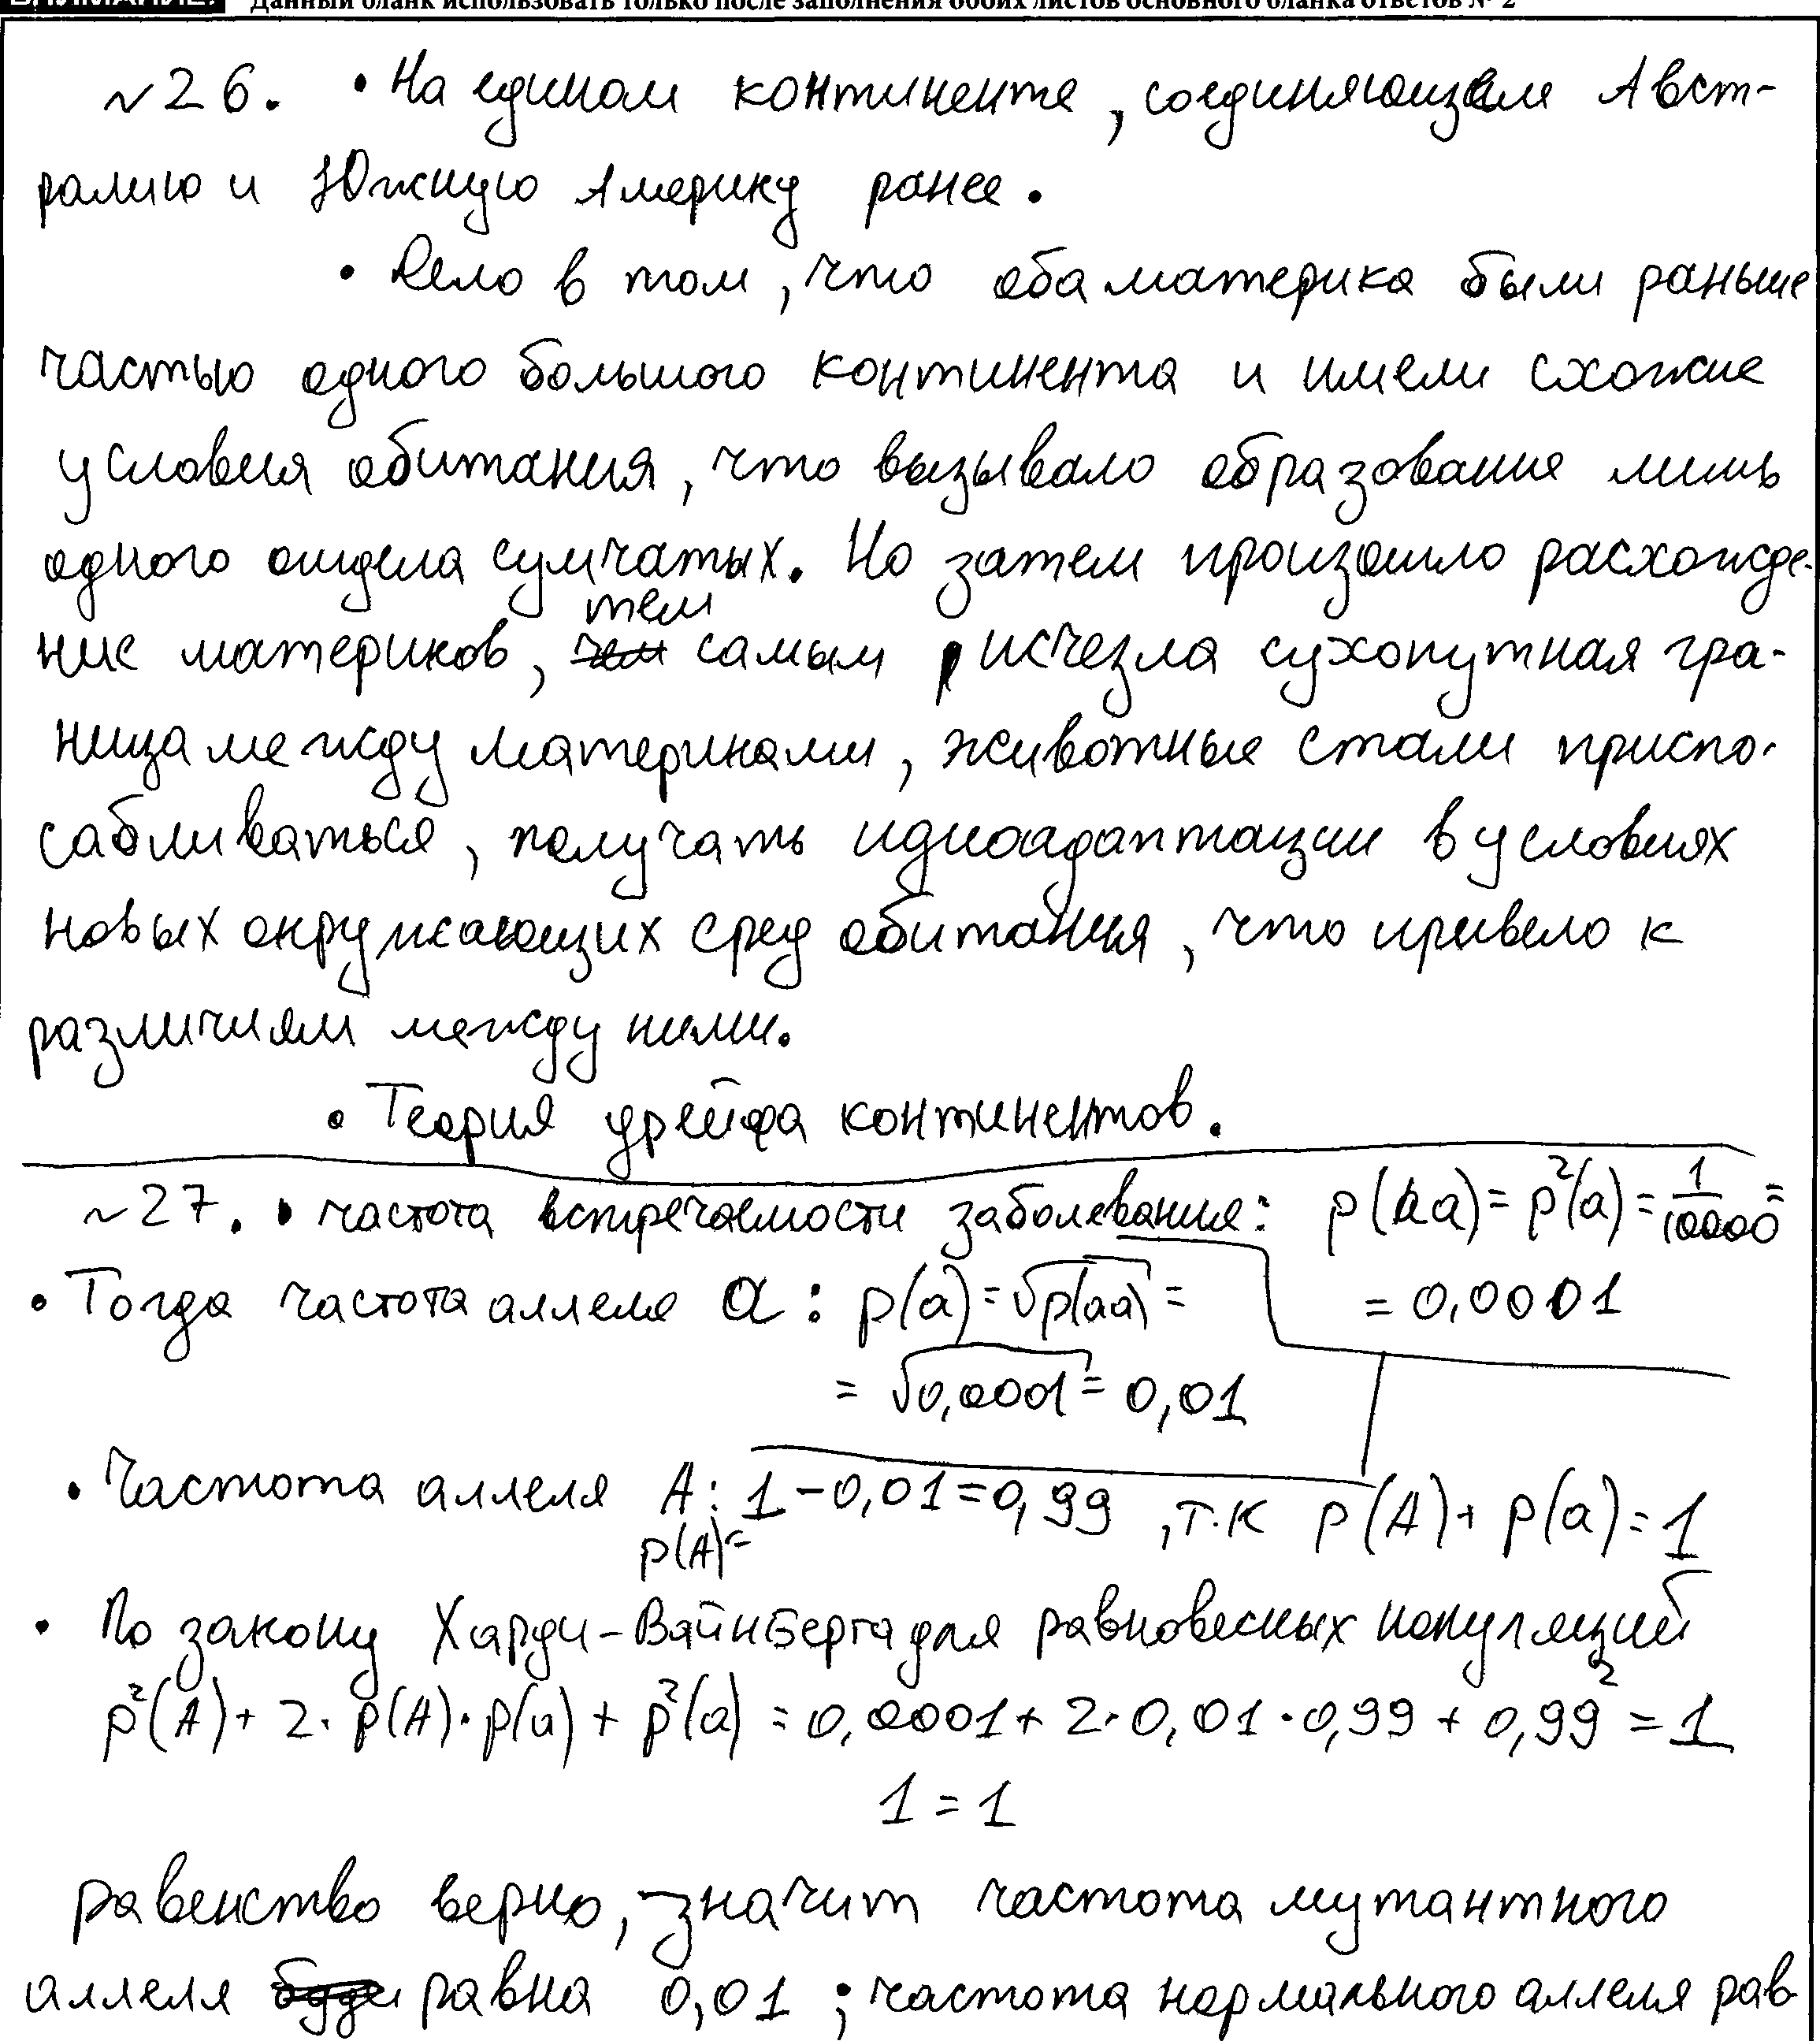 Данный бланк использовать только после заполнения обоих листов основного бланка ответов № 2
~26. • На едином континенте, соединяющем Авст-
ралию и Южную Америку ранее.
• Дело в том, что оба материка были раньше
частью одного большого континента и имели схожие
условия обитания, что вызывало образование лишь
одного отдела сумчатых. Но затем произошло расхожде-
ние материков, тем самым исчезла сухопутная гра-
ница между материками, животные стали приспо-
сабливаться, получать идиоадаптации в условиях
новых окружающих сред обитания, что привело к
различиям между ними.
• Теория дрейфа континентов.
~27. • частота встречаемости заболевания: p(aa) = p²(a) = 1/10000 =
= 0,0001
• Тогда частота аллеля a : p(a) = √p(aa) =
= √0,0001 = 0,01
• Частота аллеля A: p(A)= 1 - 0,01 = 0,99 , т.к p(A) + p(a) = 1
• По закону Харди-Вайнберга для равновесных популяций
p²(A) + 2 · p(A) · p(a) + p²(a) = 0,0001 + 2 · 0,01 · 0,99 + 0,99² = 1
1 = 1
равенство верно, значит частота мутантного
аллеля равна 0,01 ; частота нормального аллеля рав-